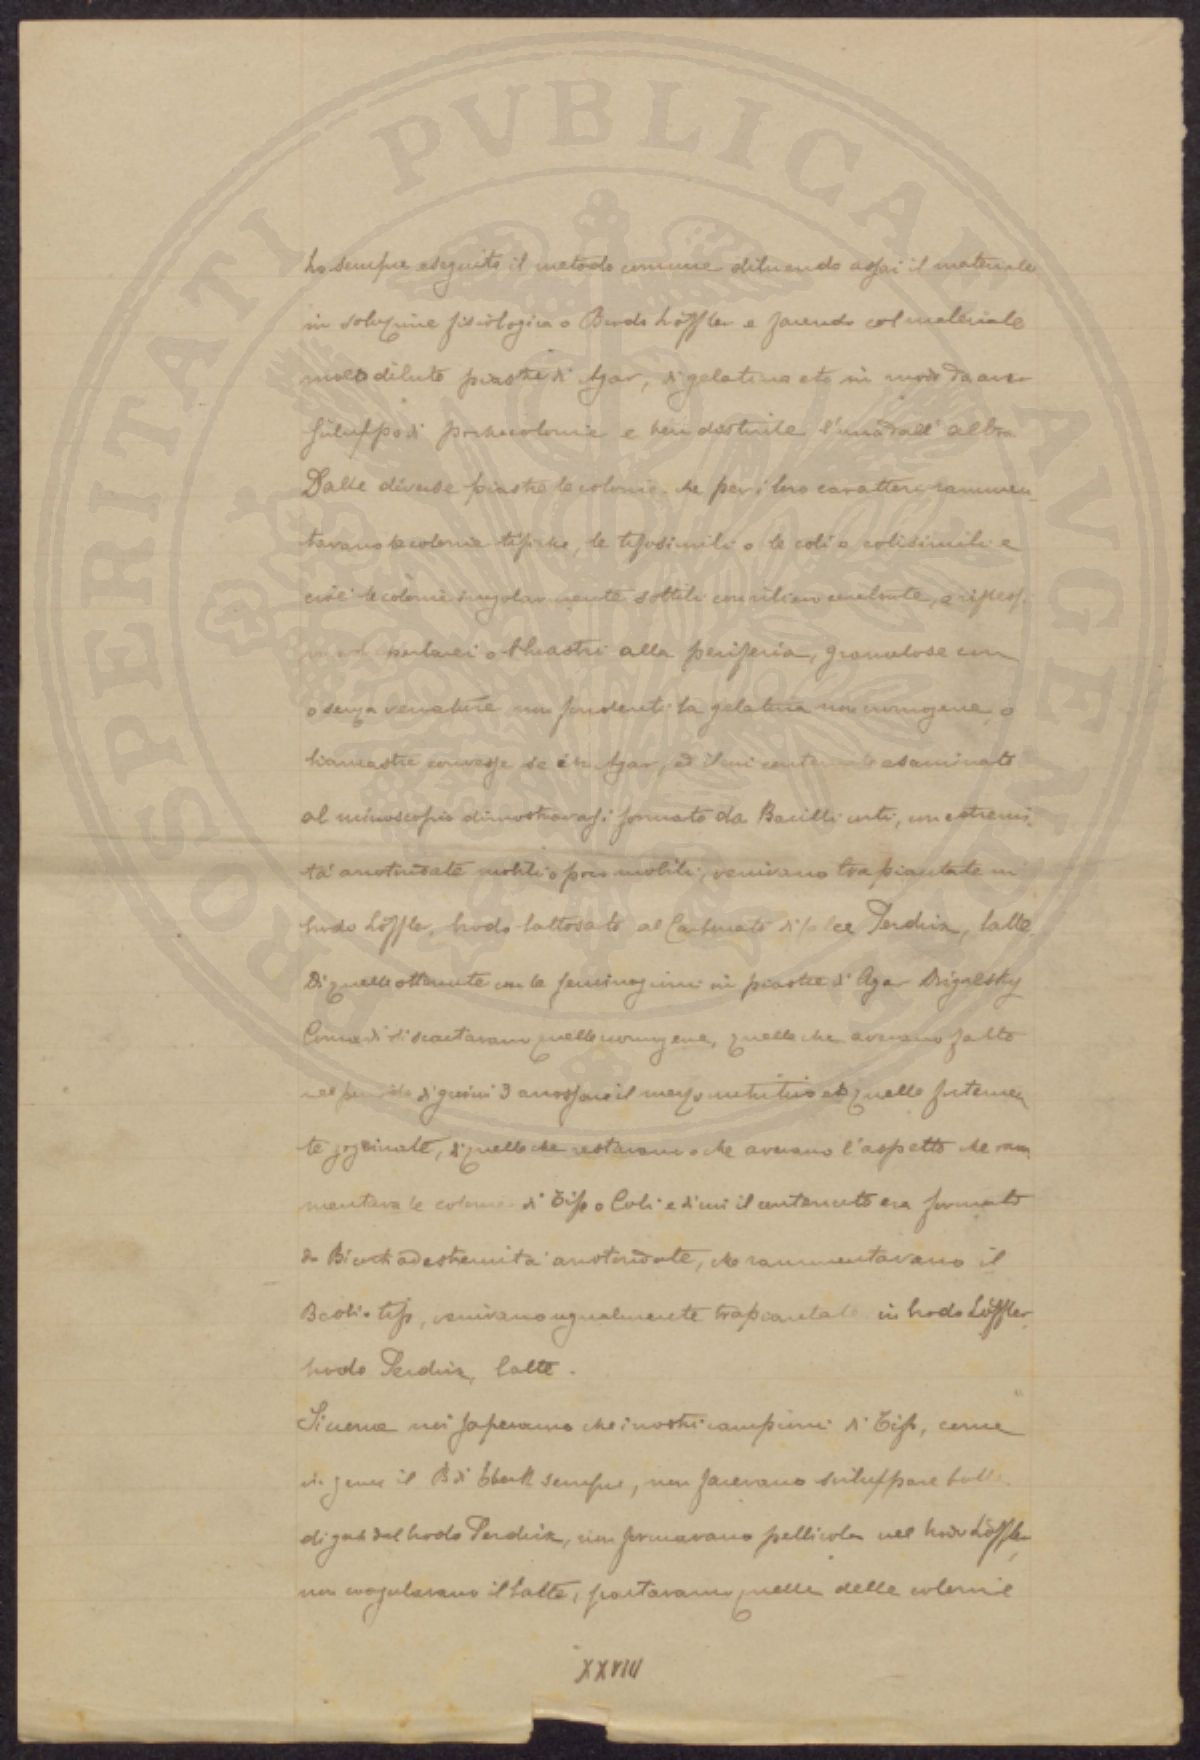 ho sempre eseguito il metodo comune diluendo assai il materiale
in soluzione fisiologica o Brodo Löffler e facendo col materiale
molto diluito piastre di Agar, di gelatina etc in modo da aver
sviluppo di poche colonie e ben distinte l'una dall'altra.
Dalle diverse piastre le colonie che per i loro caratteri rammen-
tavano le colonie tifiche, le tifosimili o le coli o colisimili e
cioè le colonie singolarmente sottili con rilievo centrale, a riflessi
perlacei o bluastri alla periferia, granulose con
o senza venature non fondenti la gelatina non cromogene, o
biancastre convesse se in Agar, ed il cui contenuto esaminato
al microscopio dimostravasi formato da Bacilli corti, con estremi-
tà arrotondate mobili o poco mobili, venivano trapiantate in
brodo Löffler, brodo lattosato al Carbonato di calce Perdrix, latte.
Di quelle ottenute con le seminagioni in piastre di Agar Drigalsky
Conradi si scartavano quelle cromogene, quelle che avevano fatto
nel periodo di giorni 3 arrossare il mezzo nutritivo ed quelle fortemen-
te, di quelle che restavano o che avevano l'aspetto che ram
mentava le colonie di Tifo o Coli e di cui il contenuto era formato
da B corti ad estremità arrotondate, che rammentavano il
B coli o tifo, venivano ugualmente trapiantate in brodo Löffler,
brodo Perdrix, latte.
Siccome noi sapevamo che i nostri campioni di Tifo, come
in genere il B di Eberth sempre, non facevano sviluppare bolle
di gas dal brodo Perdrix, non formavano pellicola nel brodo Löffler,
non coagulavano il latte, scartavamo quelle delle colonie
XXVIII
PROSPERITATI PVBLICAE AVGENDAE